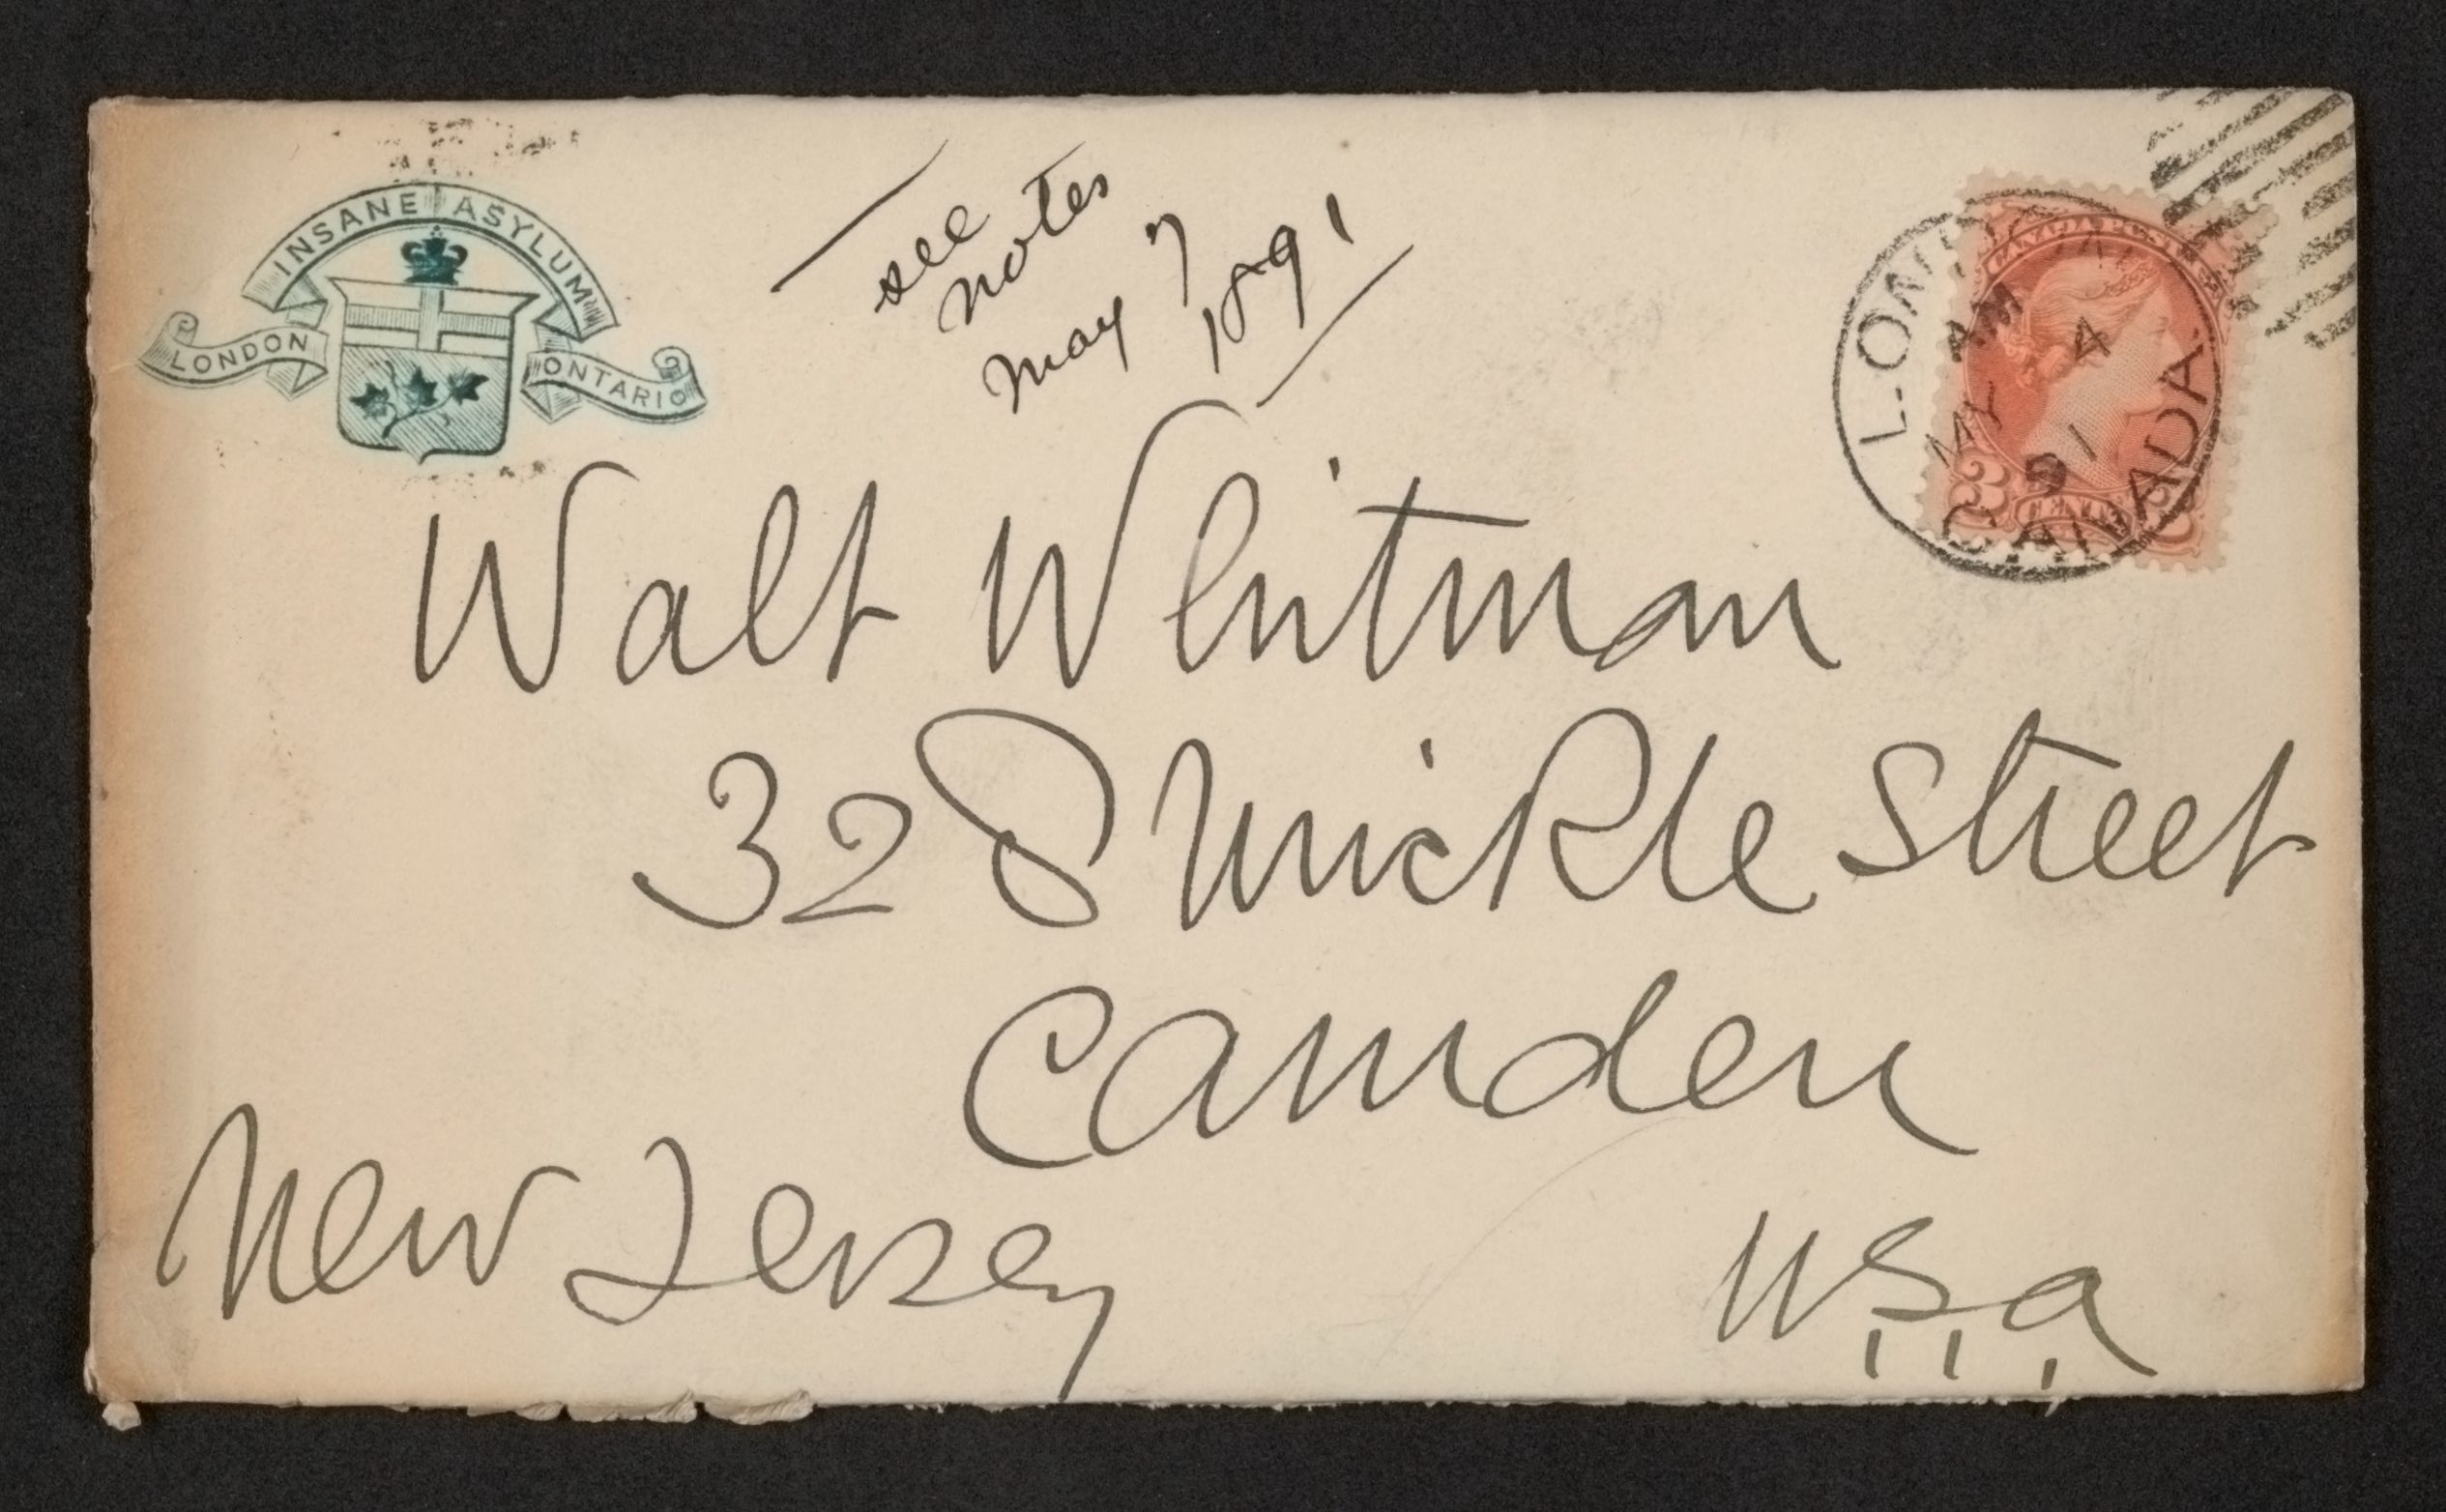 INSANE ASYLUM
LONDON ONTARIO
see
notes
May 7
1891
LONDON
AM 4
MY
91
CANADA
3 CENTS 3
Walt Whitman
328 Mickle Street
Camden
New Jersey
U.S.A.